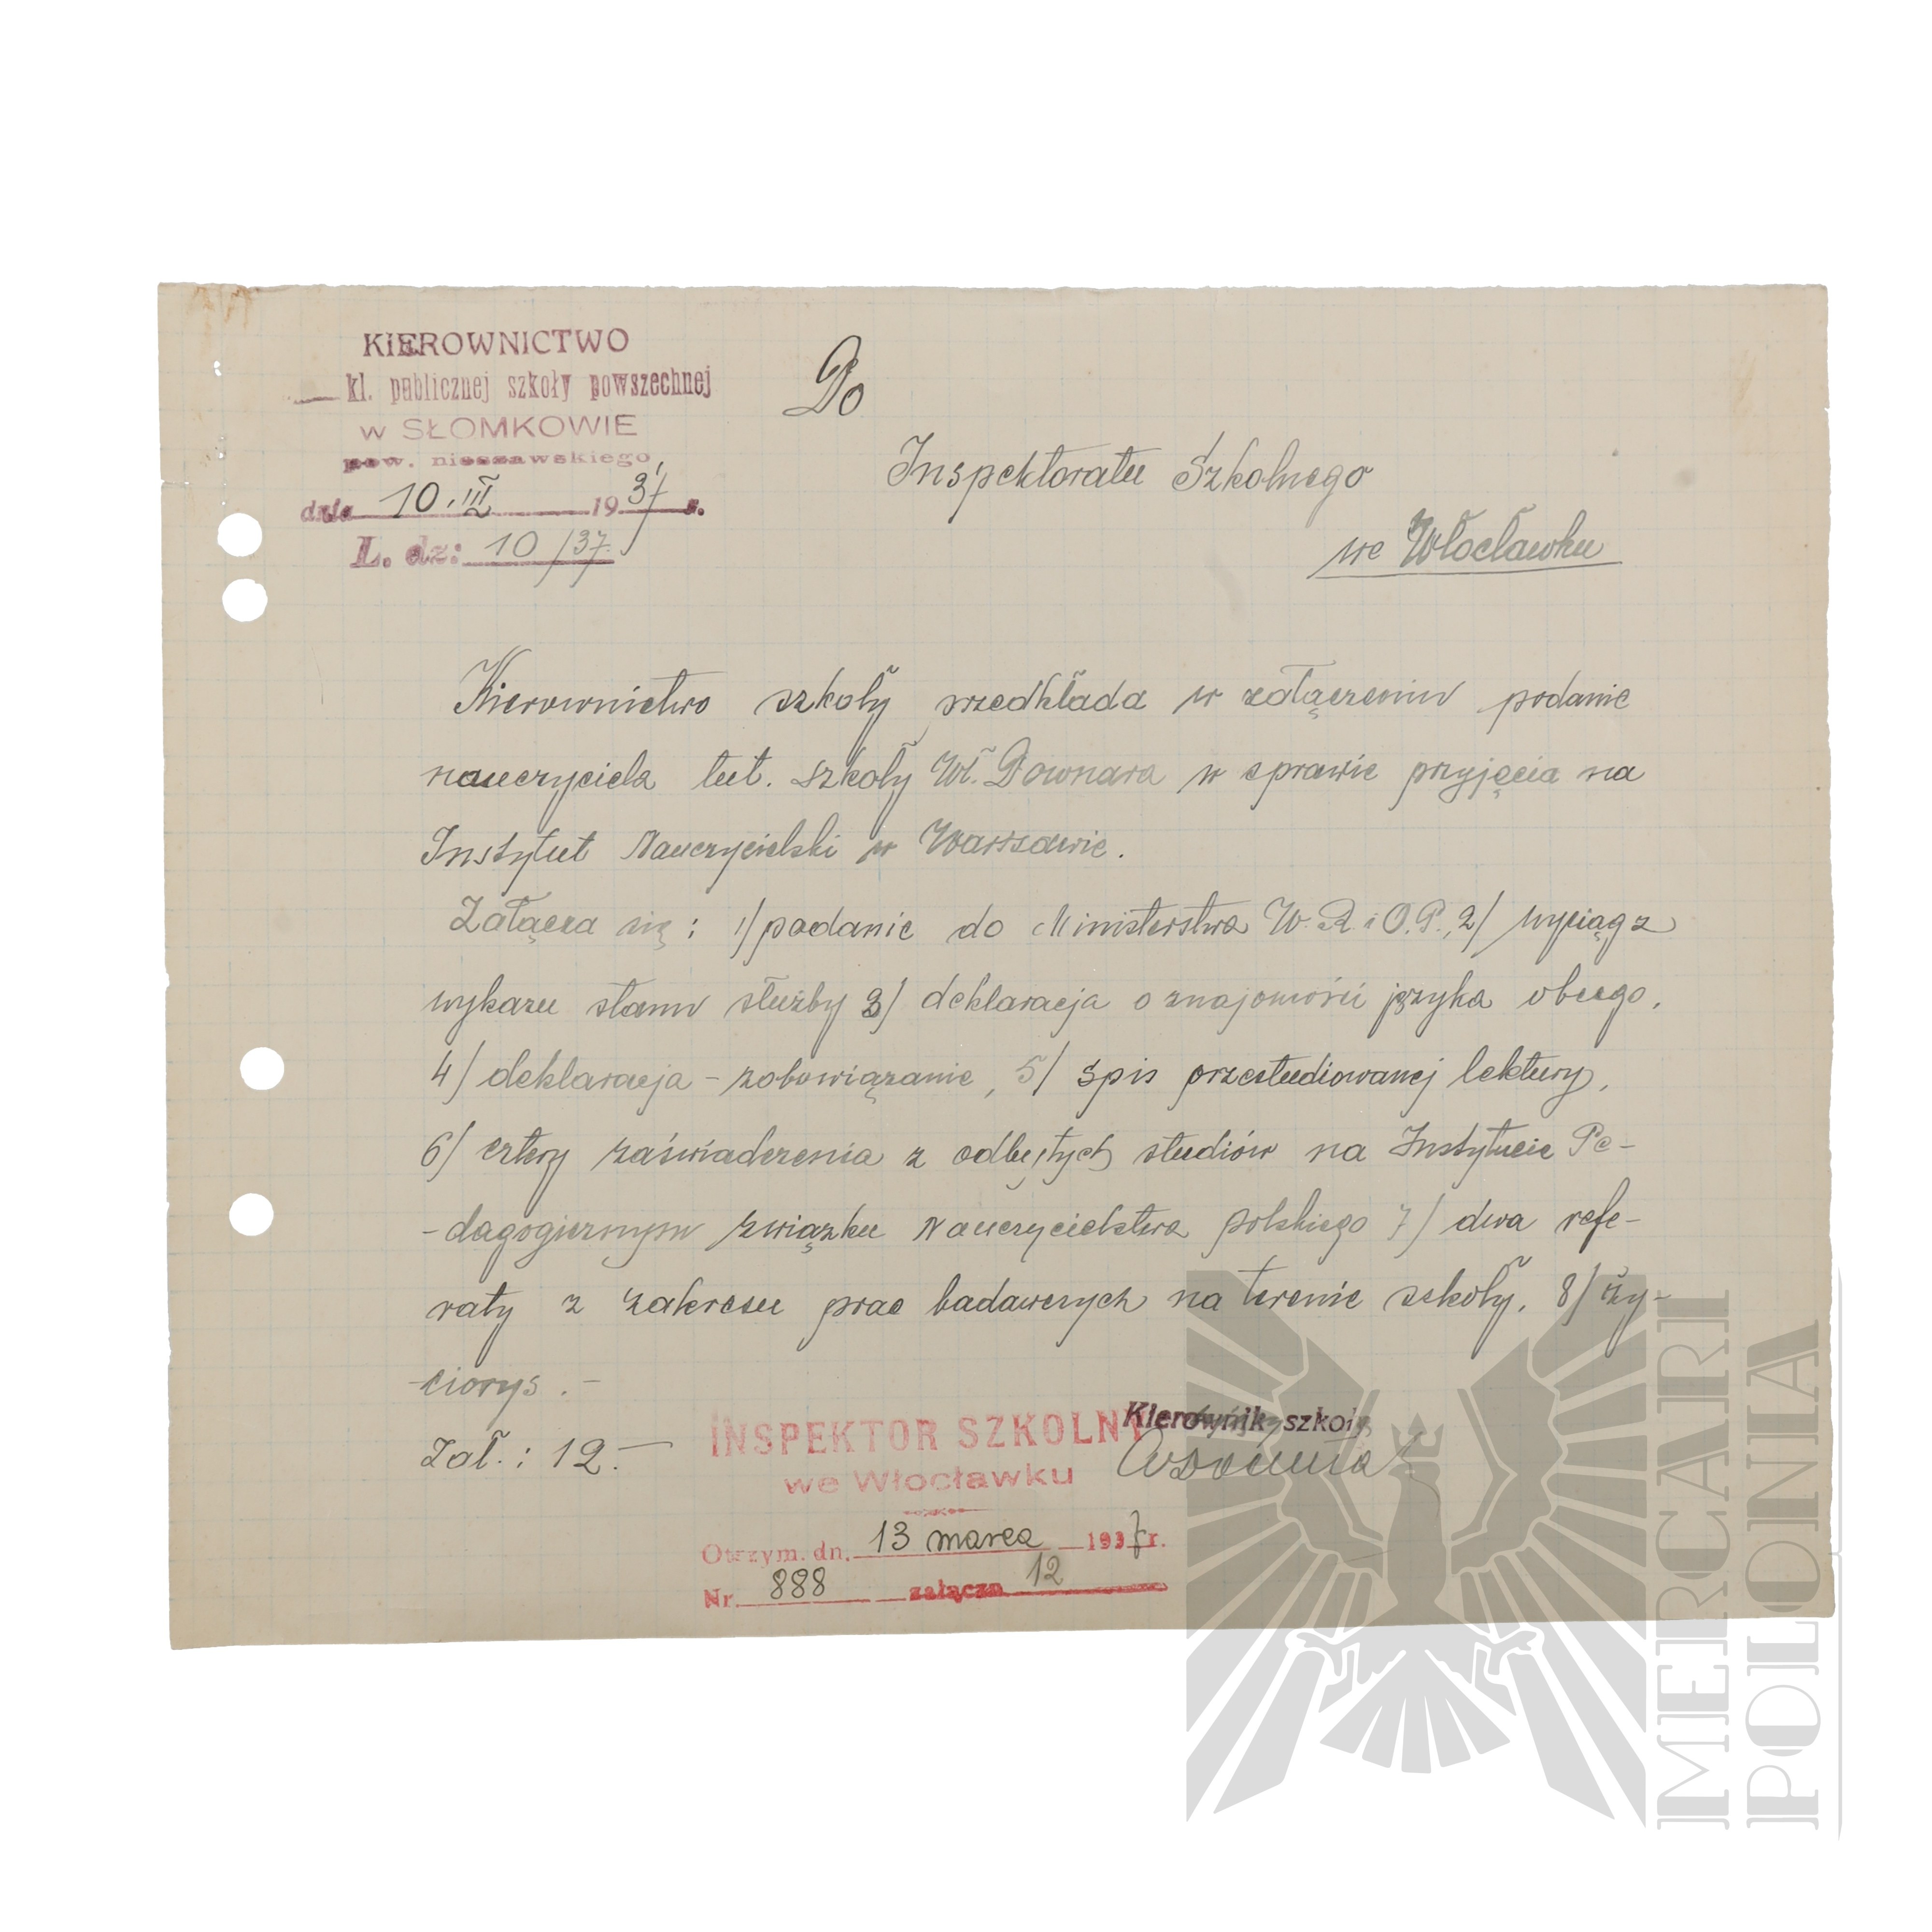 KIEROWNICTWO
kl. publicznej szkoły powszechnej
w SŁOMKOWIE
pow. nieszawskiego
dnia 10.III 1937 r.
L. dz: 10/37.
Do
Inspektoratu Szkolnego
we Włocławku
Kierownictwo szkoły przedkłada w załączeniu podanie
nauczyciela tut. szkoły Wł. Downara w sprawie przyjęcia na
Instytut Nauczycielski w Warszawie.
Załącza się: 1/ podanie do Ministerstwa W. R. i O. P., 2/ wyciąg z
wykazu stanu służby 3/ deklaracja o znajomości języka obcego,
4/ deklaracja - zobowiązanie, 5/ spis przestudiowanej lektury,
6/ cztery zaświadczenia z odbytych studiów na Instytucie Pe-
-dagogicznym związku Nauczycielstwa polskiego 7/ dwa refe-
raty z zakresu prac badawczych na terenie szkoły, 8/ ży-
-ciorys. -
Zał.: 12. -
INSPEKTOR SZKOLNY
we Włocławku
Otrzym. dn. 13 marca 1937 r.
Nr. 888 załączn 12
Kierownik szkoły
MERCARI
POLONIA